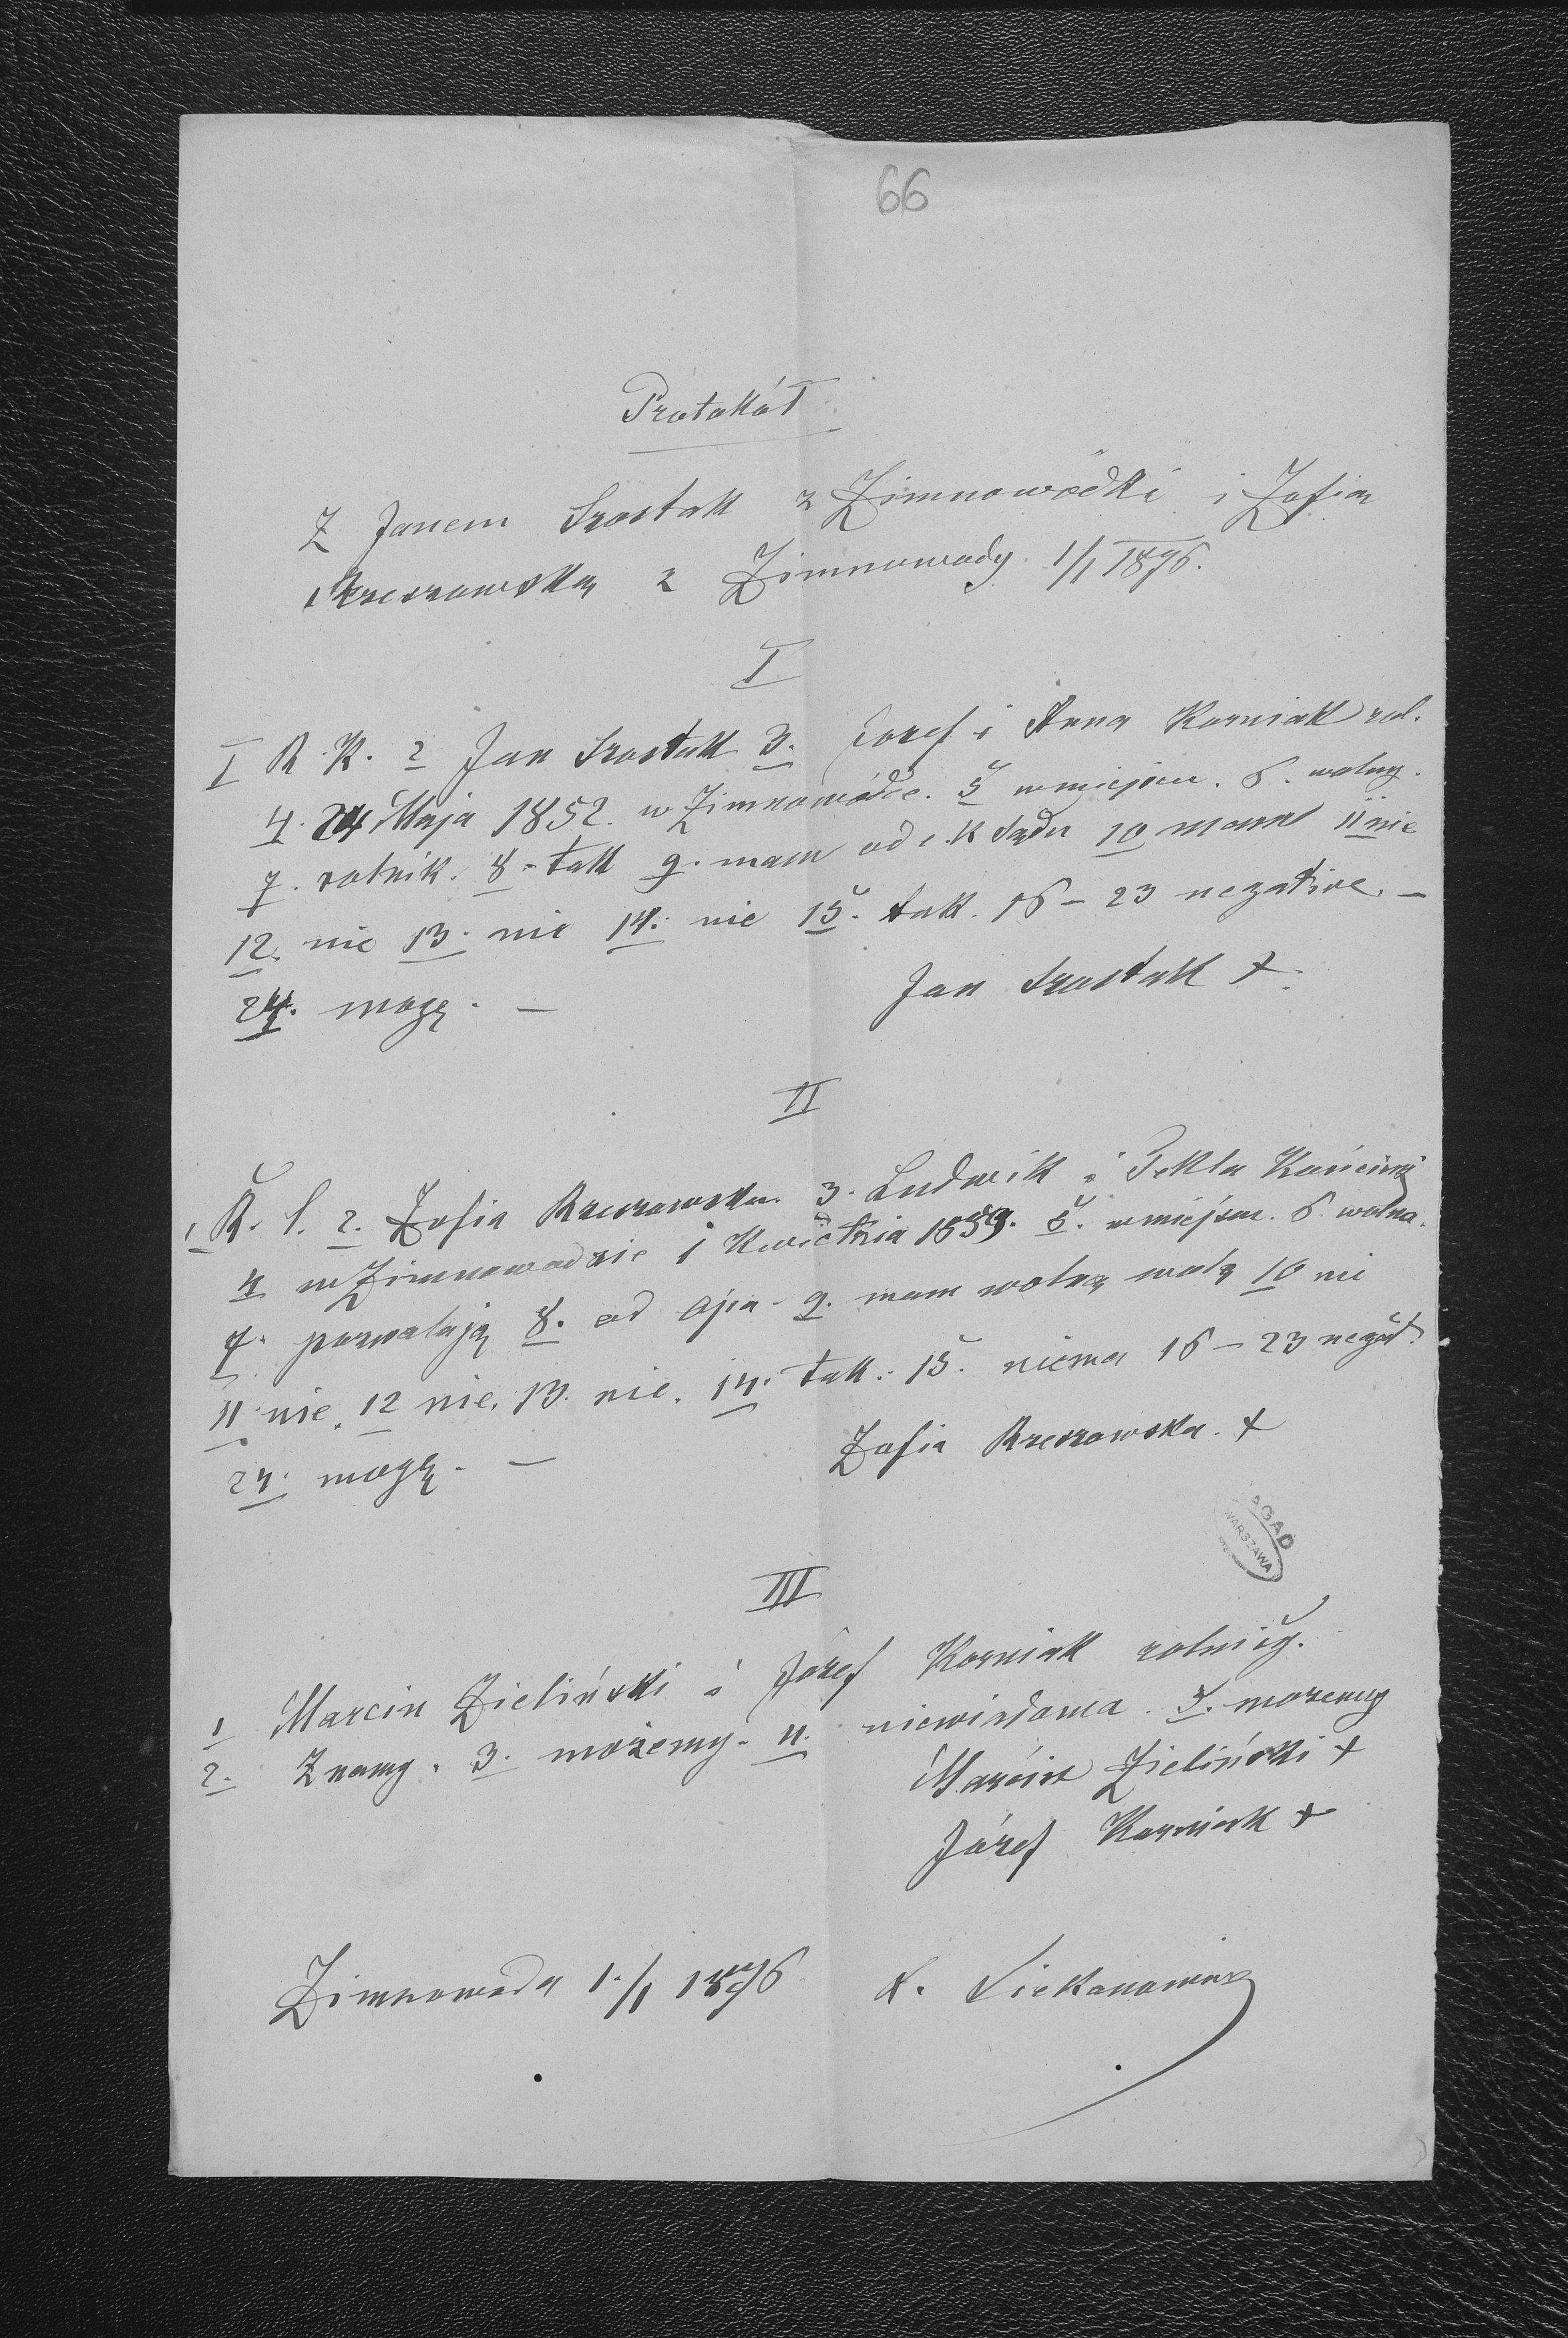 66
Protokół
Z Janem Szostak z Zimnowódki i Zofią
Rzeszowską z Zimnowody 1/1 1876.
I
I R. K. 2 Jan Szostak 3. Józef i Anna Korniak rol.
4. 24 Maja 1852. w Zimnowódce. 5 w miejscu. 6. wolny.
7. rolnik. 8. tak 9. mam od c. k Sądu 10 mam 11 nie
12. nie 13. nie 14. nie 15. tak. 16 – 23 negative. –
24. mogę. –
Jan Szostak +
II
1 R. 2. Zofia Rzeszowska. 3. Ludwik i Tekla
4 w Zimnowodzie 1 Kwietnia 1859. 5. w miejscu. 6. wolna.
7. pozwalają 8. od ojca – 9. mam wolną wolę 10 nie
11 nie. 12 nie. 13. nie. 14. tak. 15. niema 16 – 23 negat.
24. mogę. –
Zofia Rzeszowska. +
AGAD
WARSZAWA
III
1 Marcin Zieliński i Józef Korniak rolnicy.
2. Znamy. 3. możemy. 4. niewiadoma. 5. możemy
Marcin Zieliński +
Józef Korniak +
Zimnowoda 1./1 1876